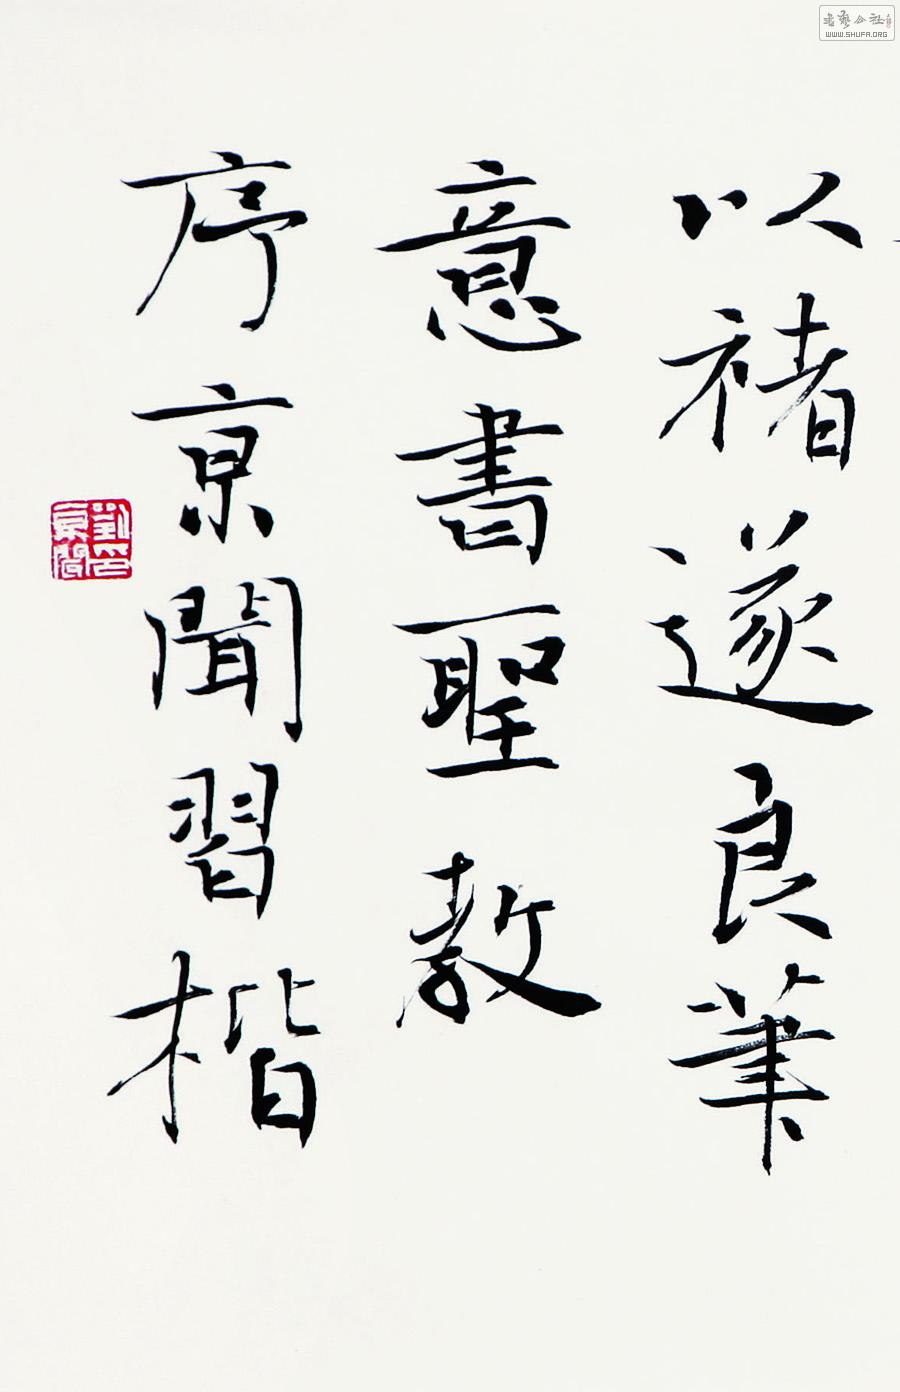 以褚遂良筆
意書聖教
序京聞習楷
劉京聞印
書藝公社
WWW.SHUFA.ORG